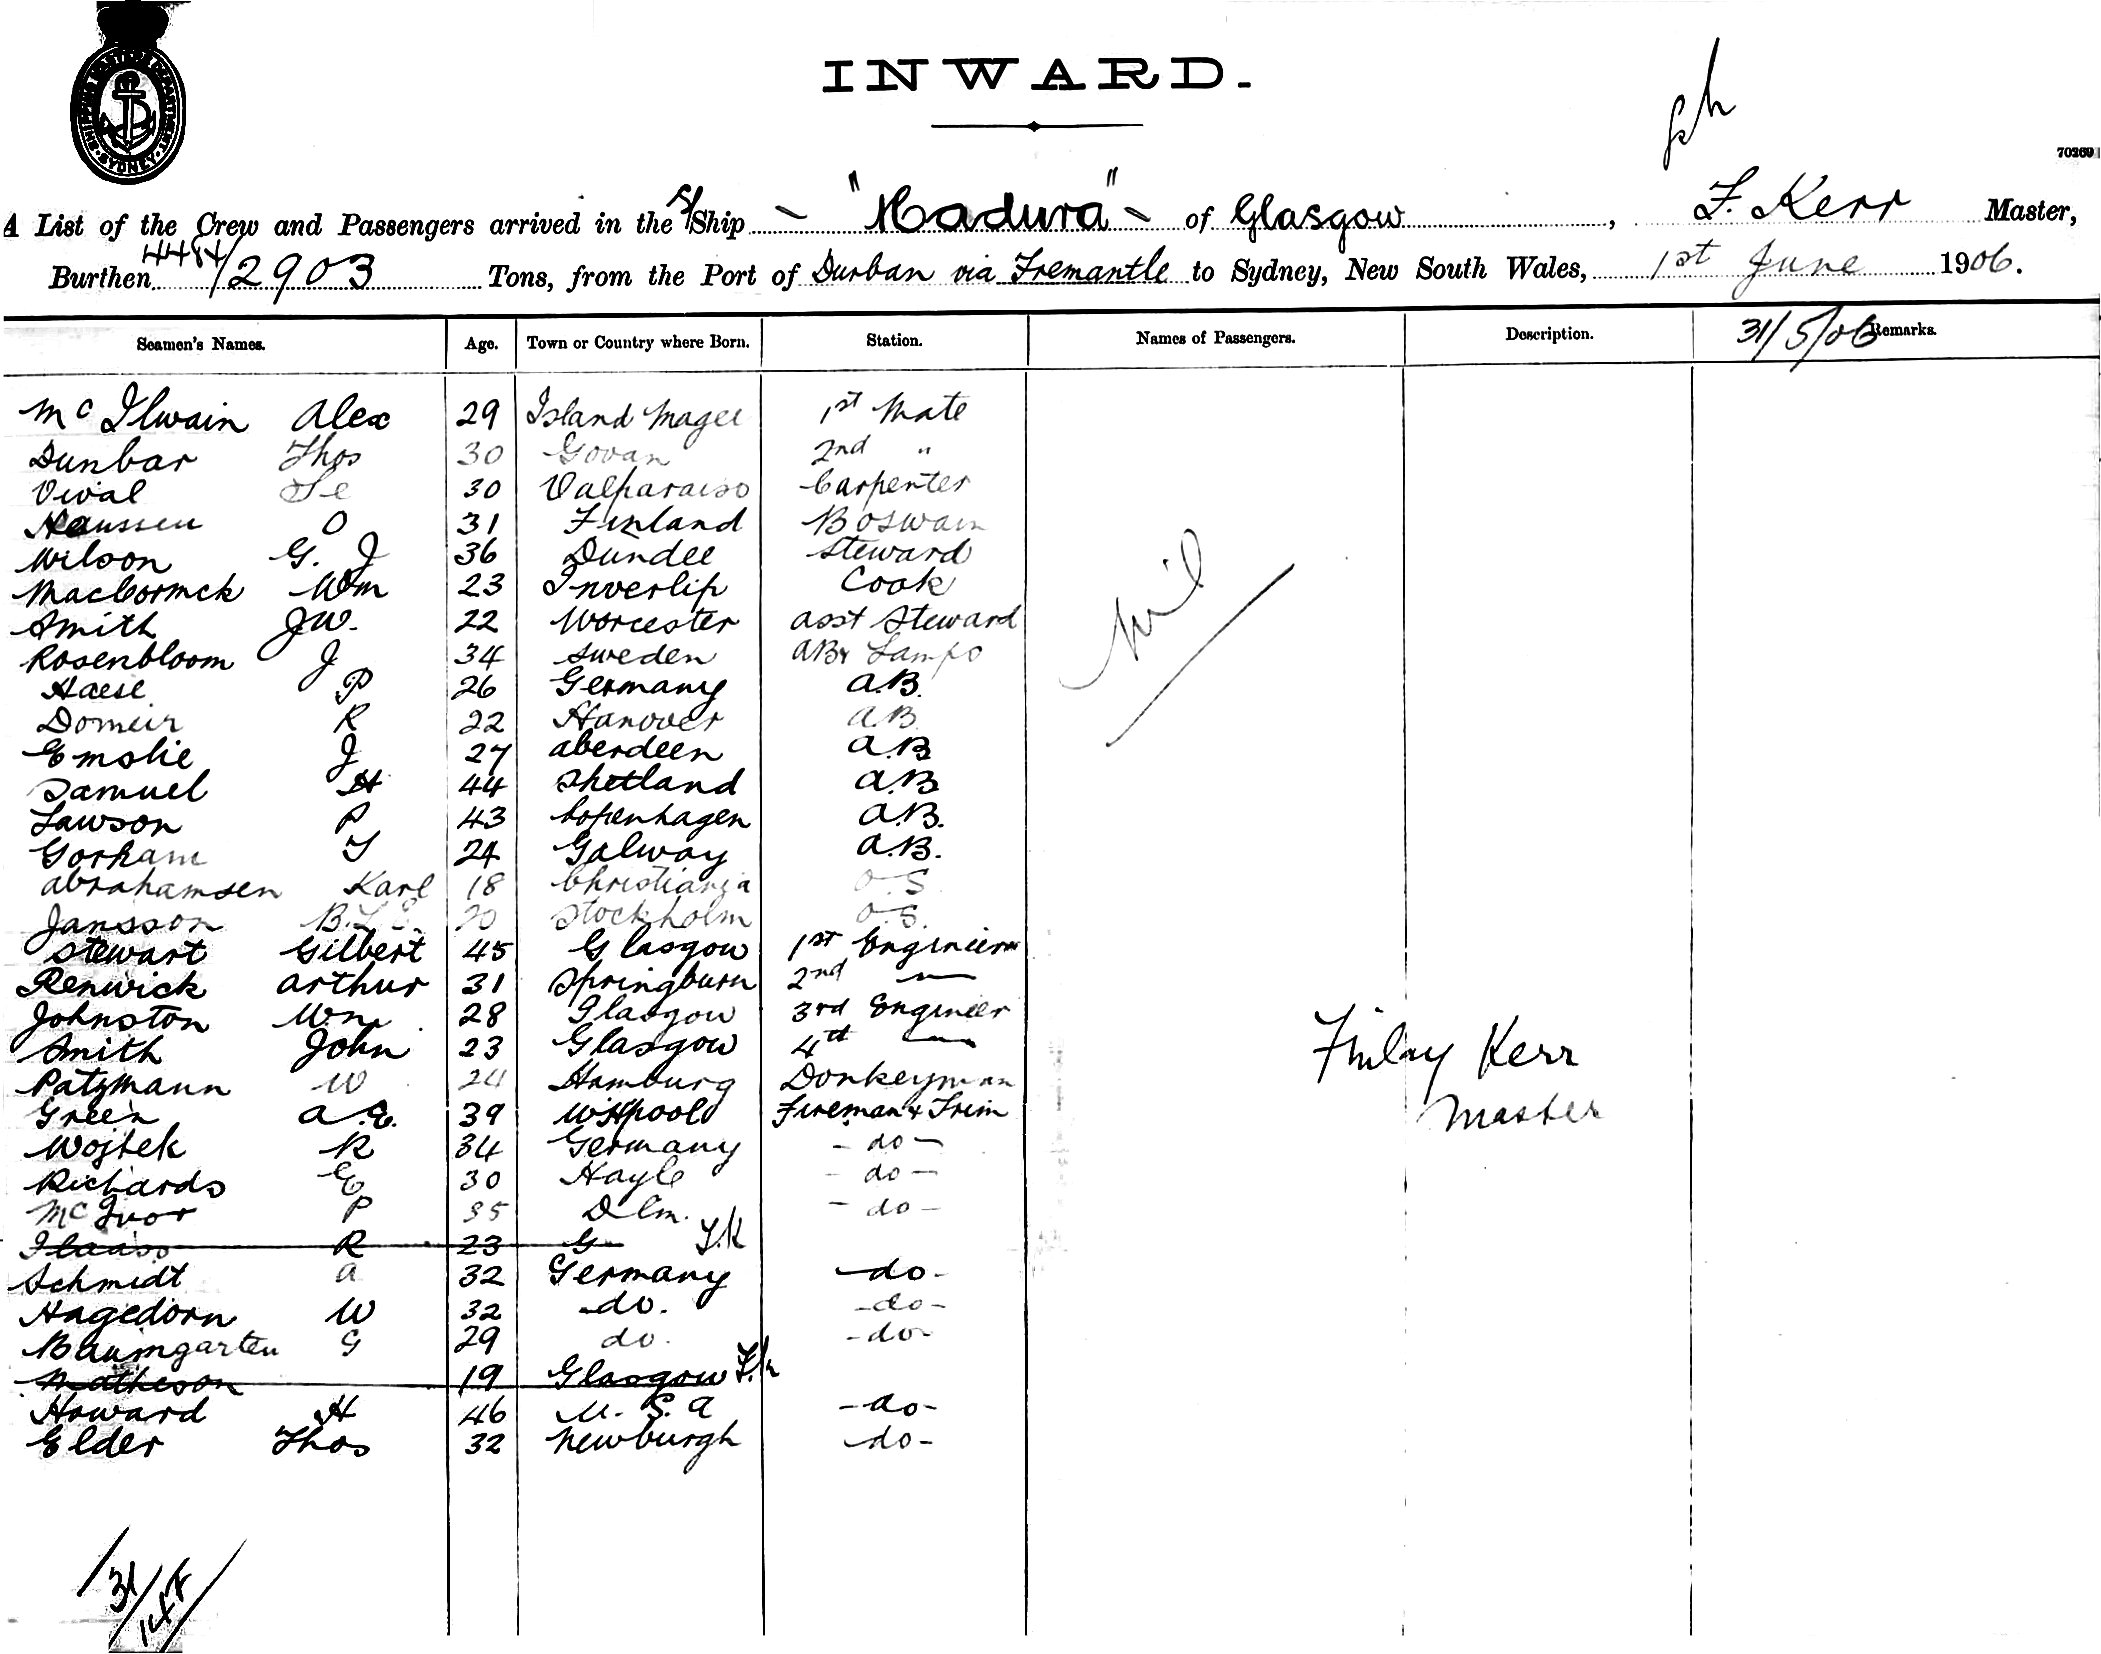 SHIPPING MASTERS DEPARTMENT · SYDNEY ·
INWARD.
70269
A List of the Crew and Passengers arrived in the S/Ship "Madura" of Glasgow, F. Kerr Master,
Burthen 4484/2903 Tons, from the Port of Durban via Fremantle to Sydney, New South Wales, 1st June 1906.
Seamen's Names. Age. Town or Country where Born. Station. Names of Passengers. Description. 31/5/06 Remarks.
Mc Ilwain Alex 29 Island Magee 1st Mate
Dunbar Thos 30 Govan 2nd "
Vival 30 Valparaiso Carpenter
O 31 Finland Boswain
Wilson G. J 36 Dundee Steward
MacCormck Wm 23 Inverlip Cook
Smith JW. 22 Worcester asst Steward
Rosenbloom J 34 Sweden AB & Lamps
Haese P 26 Germany A.B.
Domeir R 22 Hanover A.B
Emslie J 27 aberdeen A.B
Samuel H 44 Shetland A.B
Lawson P 43 Copenhagen A.B.
Gorham T 24 Galway A.B.
Abrahamsen Karl 18 Christiania O.S
Jansson B.L 20 Stockholm O.S.
Stewart Gilbert 45 Glasgow 1st Engineer
Renwick Arthur 31 Springburn 2nd —
Johnston Wm 28 Glasgow 3rd Engineer
Smith John 23 Glasgow 4th —
Patzmann W 24 Hamburg Donkeyman
Green A.E. 39 W'Hpool Fireman & Trim
Wojtek R 34 Germany - do -
Richards E 30 Hayle - do -
McIvor P 35 Dlm. - do -
R 23 G F.K
Schmidt A 32 Germany - do -
Hagedorn W 32 - do. - do -
Baumgarten G 29 do. - do -
Matheson 19 Glasgow F.K
Howard H 46 U. S. A - do -
Elder Thos 32 Newburgh - do -
Nil
Finlay Kerr
Master
31